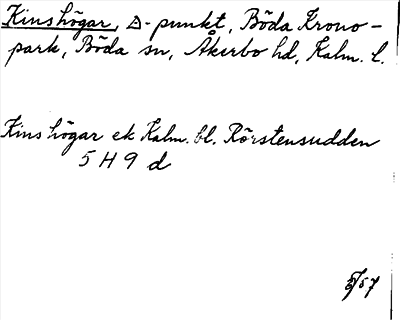 Kinshögar, △-punkt, Böda Krono-
park, Böda sn, Åkerbo hd, Kalm. l.
Kinshögar ek Kalm. bl. Rörstensudden
5 H 9 d